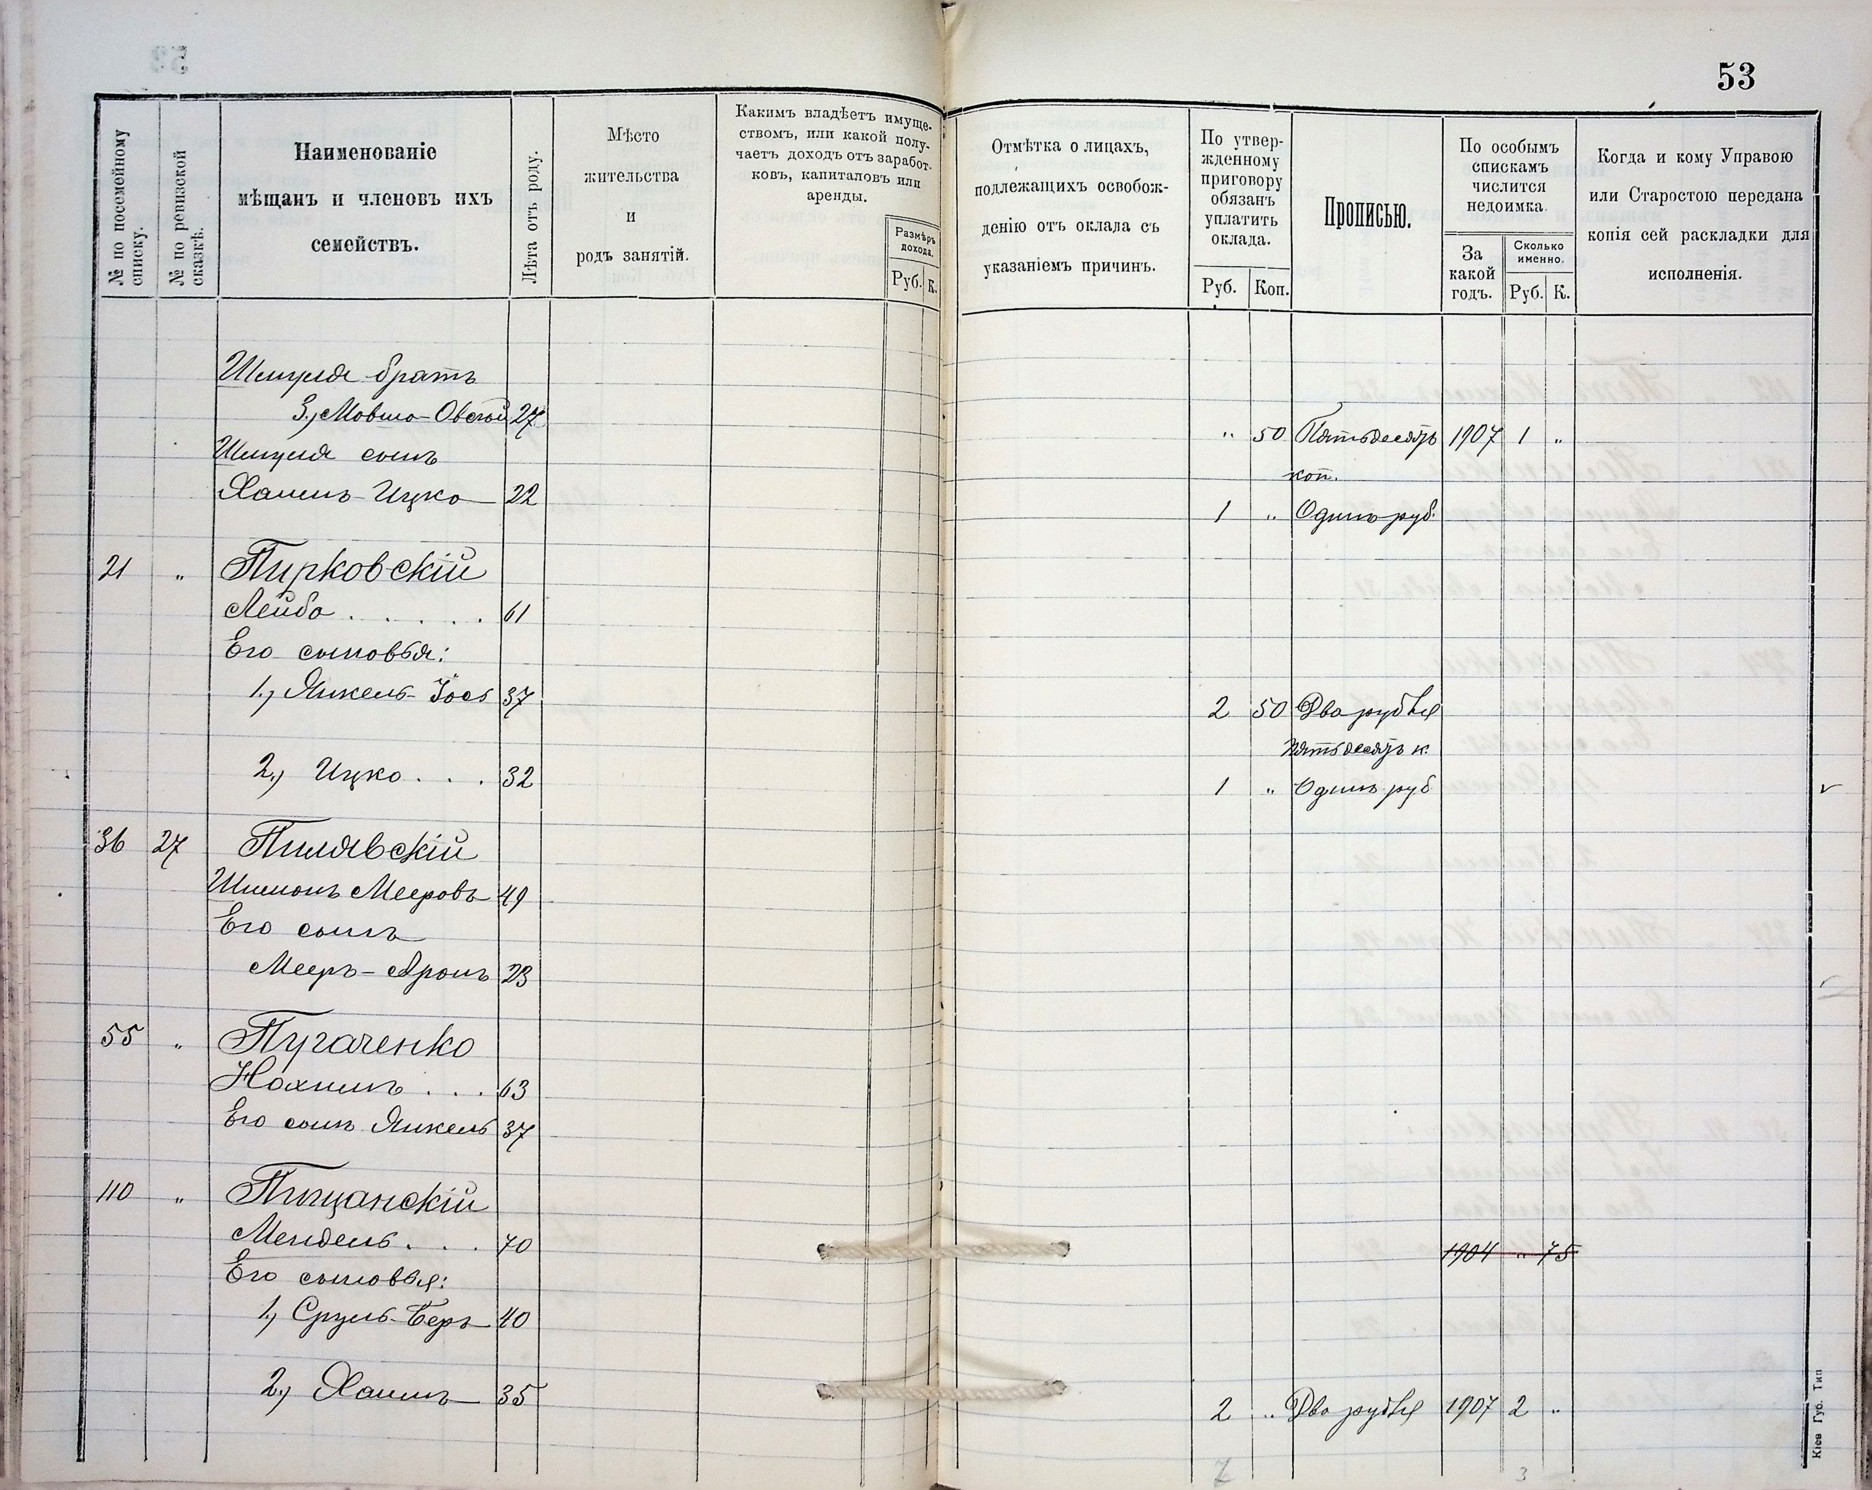 53
№ по посемейному списку.
№ по ревизской сказкѣ.
Наименованіе
мѣщанъ и членовъ ихъ
семействъ.
Лѣта отъ роду.
Мѣсто
жительства
и
родъ занятій.
Какимъ владѣетъ имуще-
ствомъ, или какой полу-
чаетъ доходъ отъ заработ-
ковъ, капиталовъ или
аренды.
Размѣръ
дохода.
Руб. К.
Отмѣтка о лицахъ,
подлежащихъ освобож-
денію отъ оклада съ
указаніемъ причинъ.
По утвер-
жденному
приговору
обязанъ
уплатить
оклада.
Руб. Коп.
Прописью.
По особымъ
спискамъ
числится
недоимка.
За
какой
годъ.
Сколько
именно.
Руб. К.
Когда и кому Управою
или Старостою передана
копія сей раскладки для
исполненія.
Шмуля братъ
3., Мовшо-Овсей 27 " 50 Пятьдесятъ 1907 1 "
коп.
Шмуля сынъ
Хаимъ-Ицко 22 1 " Одинъ руб.
21 " Пирковскій
Лейба . . . . . 61
Его сыновья:
1., Янкель-Іось 37 2 50 Два рубля
пятьдесятъ к.
2., Ицко . . . 32 1 " Одинъ руб
36 27 Пилявскій
Шимонъ Мееровъ 49
Его сынъ
Мееръ-Аронъ 23
55 " Пугаченко
Нохимъ . . . 63
Его сынъ Янкель 37
110 " Пищанскій
Мендель . . . 70 1904 " 75
Его сыновья:
1., Сруль-Беръ 40
2., Хаимъ 35 2 " Два рубля 1907 2 "
7 3
Кіев Губ. Тип